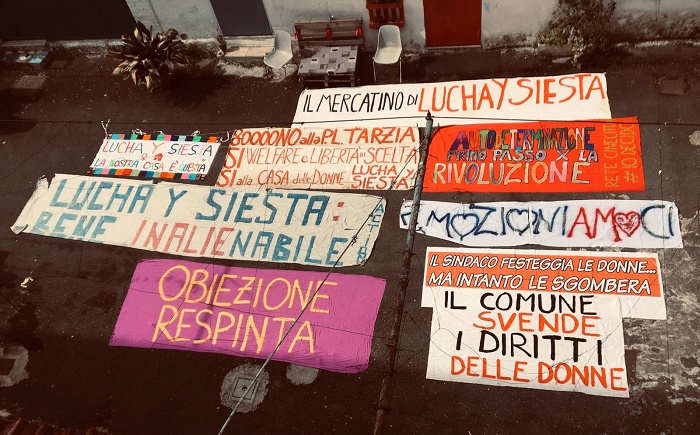 IL MERCATINO DI LUCHA Y SIESTA
LUCHA Y SIESTA
LA NOSTRA CASA È QUESTA
80000NO alla PL. TARZIA
SI WELFARE e LIBERTÀ di SCELTA
SI alla CASA delle DONNE LUCHA Y SIESTA
AUTODETERMINAZIONE
PRIMO PASSO X LA
RIVOLUZIONE
#IODECIDO
LUCHA Y SIESTA:
BENE INALIENABILE
EMOZIONIAMOCI
OBIEZIONE
RESPINTA
IL SINDACO FESTEGGIA LE DONNE...
MA INTANTO LE SGOMBERA
IL COMUNE
SVENDE
I DIRITTI
DELLE DONNE